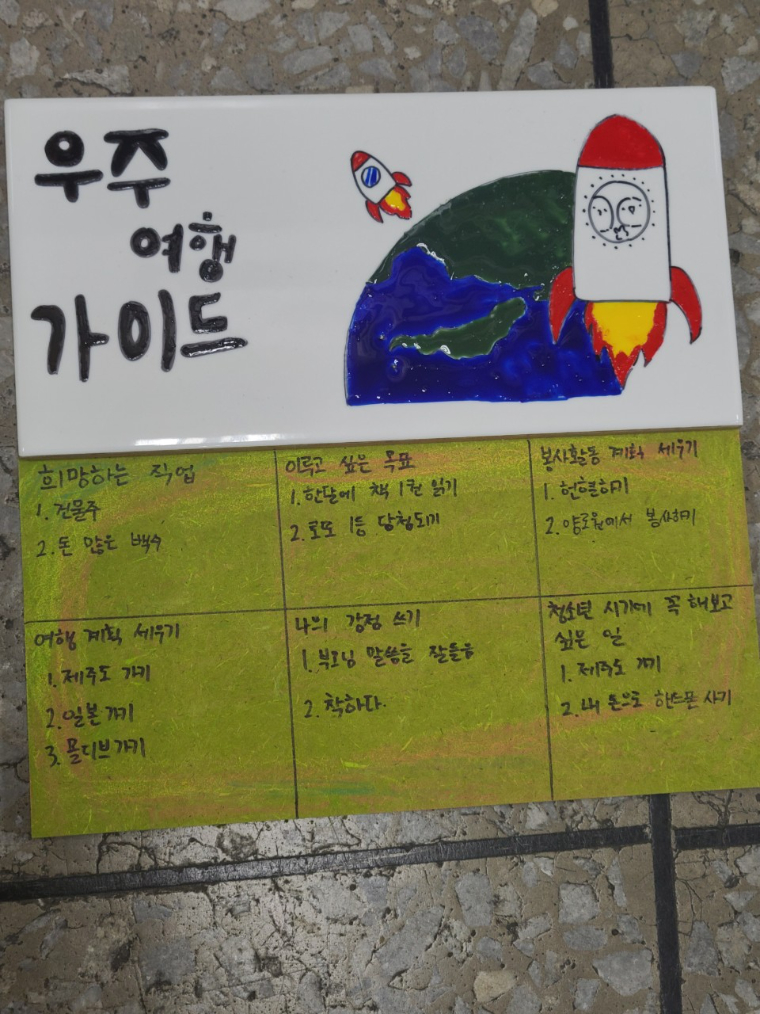 우주
여행
가이드
희망하는 직업
1. 건물주
2. 돈 많은 백수
이루고 싶은 목표
1. 한달에 책 1권 읽기
2. 로또 1등 당첨되기
봉사활동 계획 세우기
1. 헌혈하기
2. 양로원에서 봉사하기
여행 계획 세우기
1. 제주도 가기
2. 일본가기
3. 몰디브가기
나의 강점 쓰기
1. 부모님 말씀을 잘들음
2. 착하다.
청소년 시기에 꼭 해보고
싶은 일
1. 제주도 가기
2. 내 돈으로 핸드폰 사기